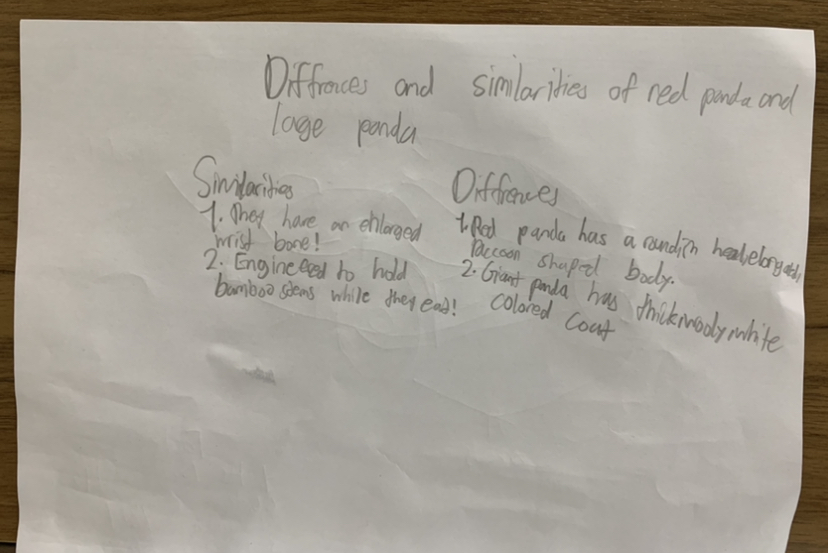 Diffrnces and similarities of red panda and
lage panda
Similarities
1. They have an enlarged
wrist bone!
2. Engineeed to hold
bamboo stems while they eat!
Diffrences
1. Red panda has a roundish head, elongated,
raccoon shaped body.
2. Giant panda has thick, wooly, white
colored coat